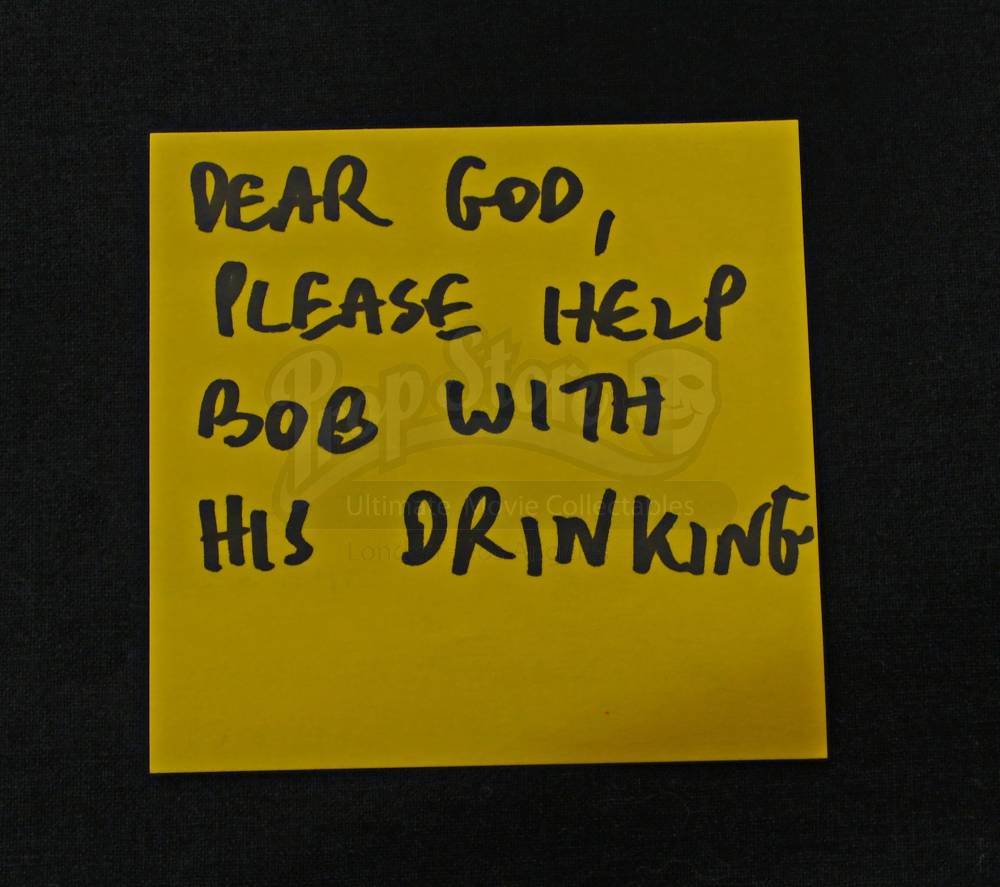 DEAR GOD,
PLEASE HELP
BOB WITH
HIS DRINKING
Prop Store
Ultimate Movie Collectables